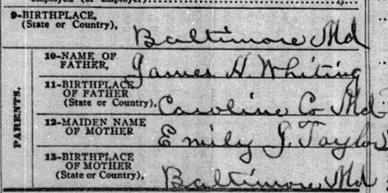 9-BIRTHPLACE,
(State or Country), Baltimore Md
10-NAME OF
FATHER, James H. Whiting
11-BIRTHPLACE
OF FATHER
(State or Country), Caroline Co Md
PARENTS.
12-MAIDEN NAME
OF MOTHER Emily J. Taylor
13-BIRTHPLACE
OF MOTHER
(State or Country), Baltimore Md